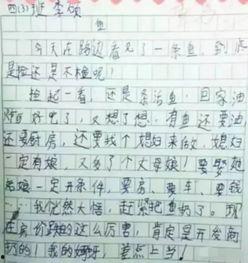 四(3)班 李硕
鱼
今天在路边看见了一条鱼,到底
是捡还是不捡呢!
捡起一看,还是条活鱼,回家油
炸好吃了,又想了想,有鱼还要油
还要厨房,还要找个媳妇来做,媳妇
一定有娘,又多了个丈母娘!要娶媳
一定开条件,要房、要车、要钱
我恍然大悟,赶紧把鱼扔了。现
在房价跌的这么厉害,肯定是开发商
扔的!我的妈呀,差点上当!